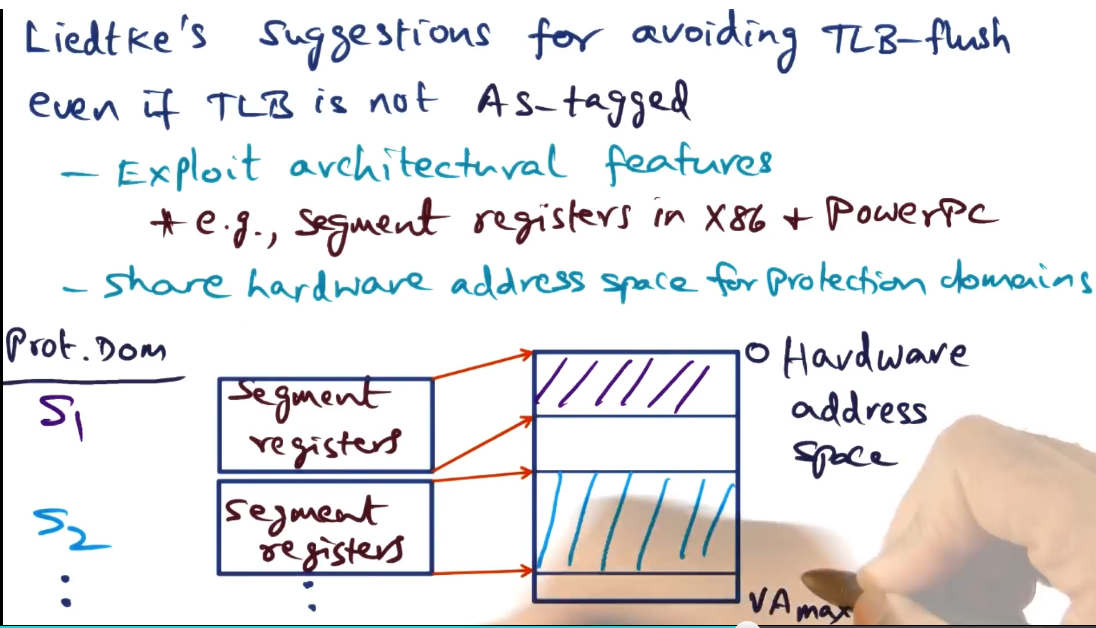 Liedtke's suggestions for avoiding TLB-flush
even if TLB is not AS-tagged
- Exploit architectural features
* e.g., segment registers in X86 + PowerPC
- share hardware address space for protection domains
Prot. Dom
S1
segment
registers
S2
segment
registers
0 Hardware
address
space
VA max